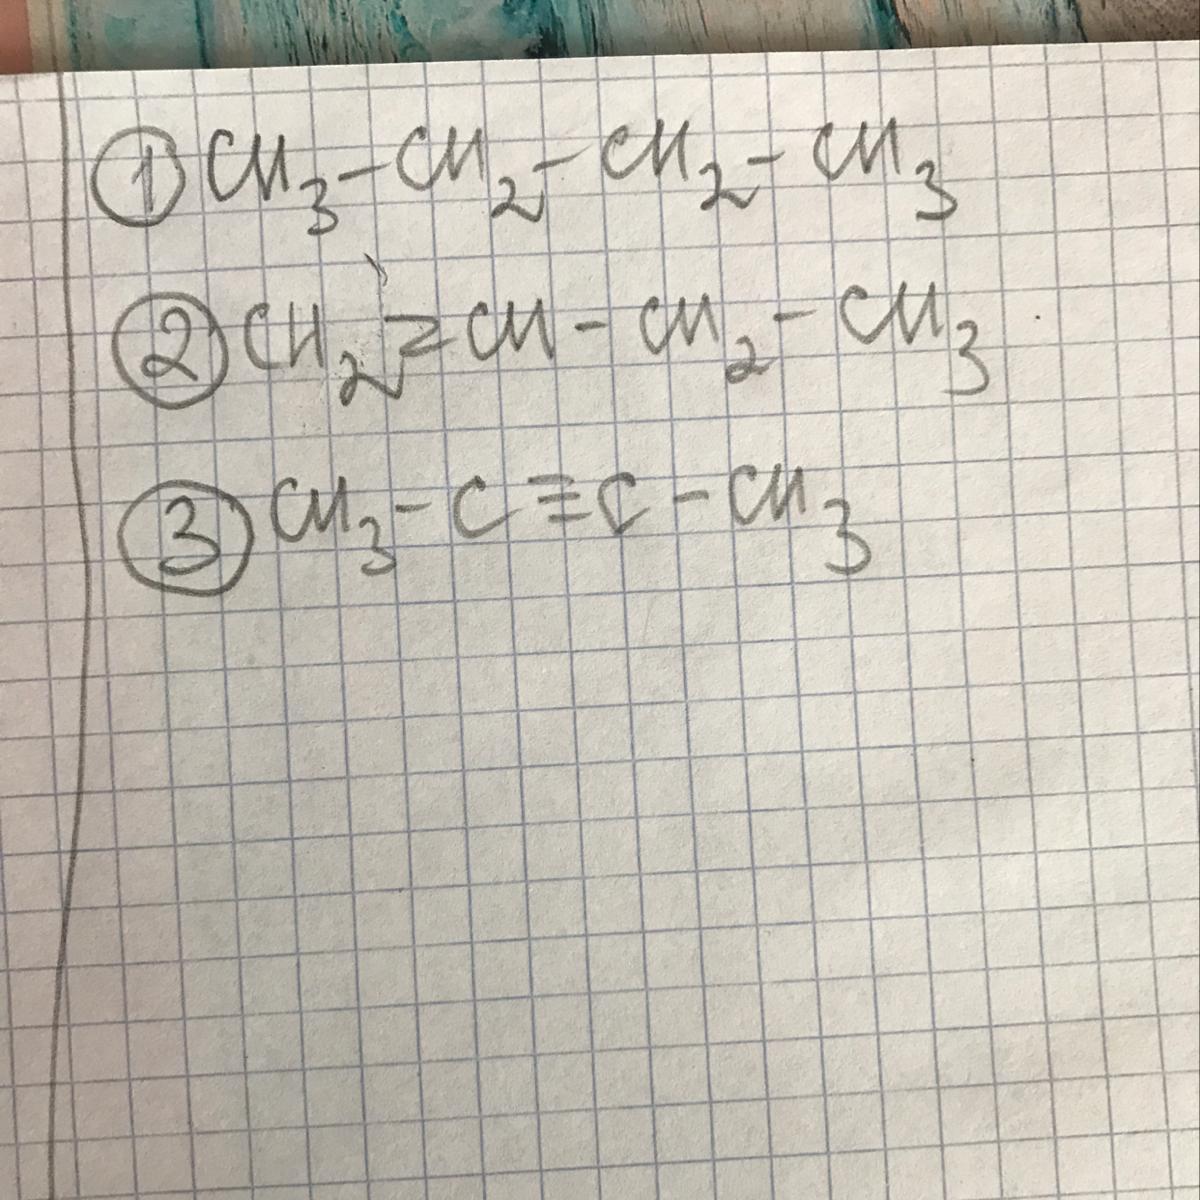 ① CH₃-CH₂-CH₂-CH₃
② CH₂=CH-CH₂-CH₃
③ CH₃-C≡C-CH₃